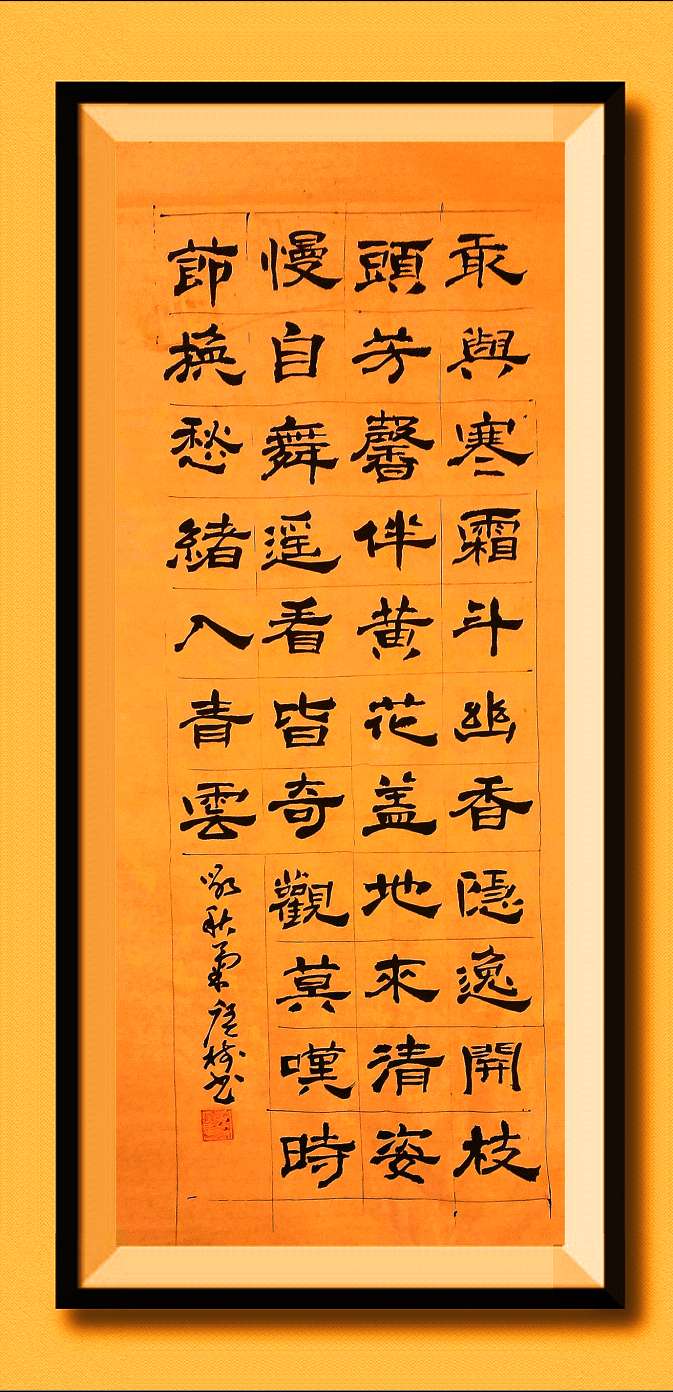 敢與寒霜斗幽香隱逸開枝
頭芳馨伴黄花盖地來清姿
慢自舞遥看皆奇觀莫嘆時
節換愁緒入青雲
秋菊树书